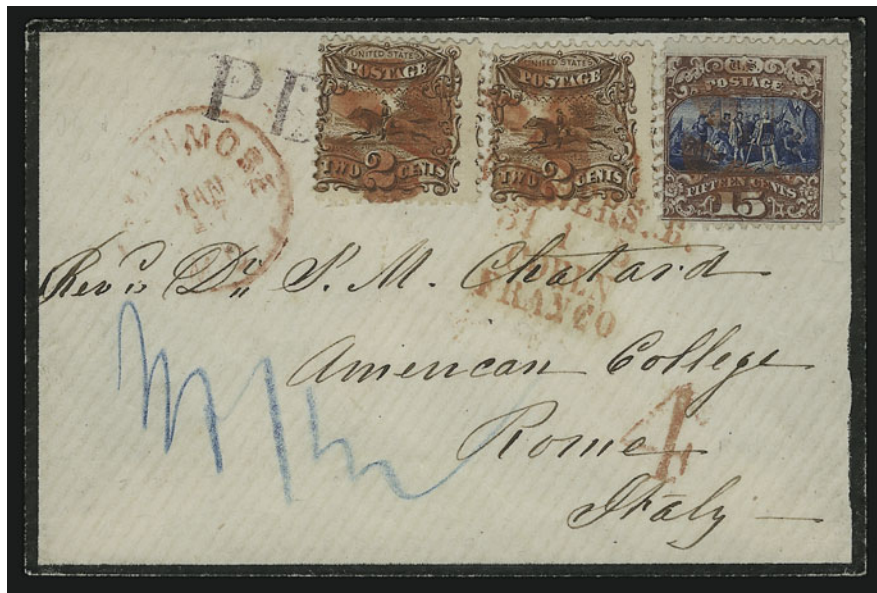 UNITED STATES
POSTAGE
TWO 2 CENTS
UNITED STATES
POSTAGE
TWO 2 CENTS
U.S.
POSTAGE
FIFTEEN CENTS
15
JAN
FRANCO
Rev.d Dr. S. M. Chatard
American College
Rome
4
Italy